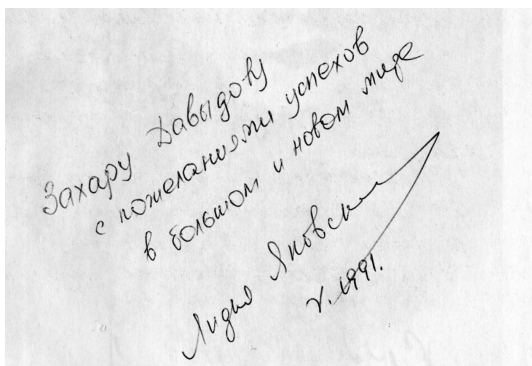 Захару Давыдову
с пожеланиями успехов
в большом и новом мире
Лидия Яновская
V. 1991.